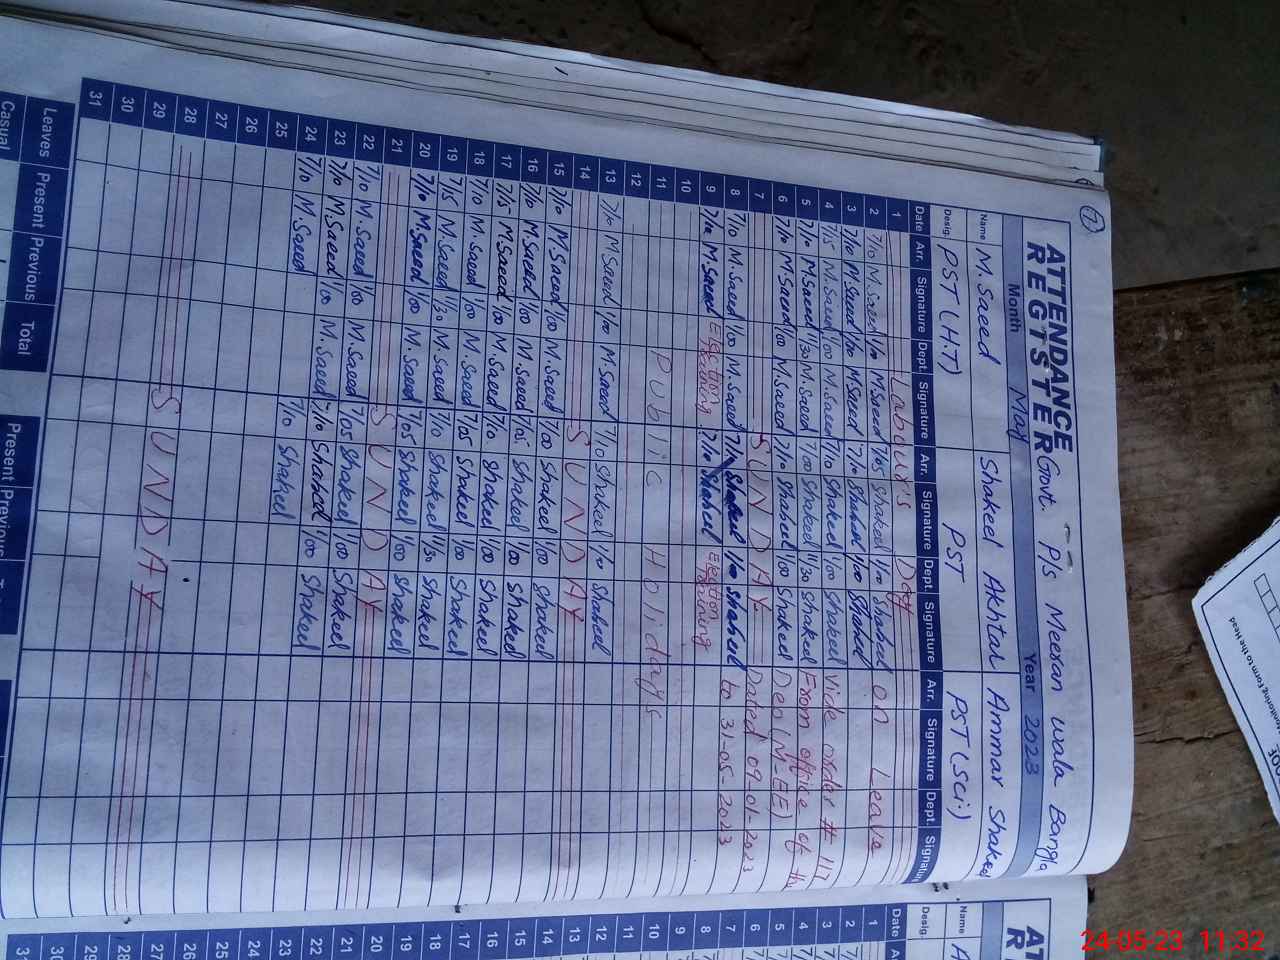 7
ATTENDANCE REGISTER
Govt. P/s Meeran wala Bangla
Month May Year 2023
Name M. Saeed Shakeel Akhtar Ammar Shakeel
Desig. PST (H.T) PST PST (Sci:)
Date Arr. Signature Dept. Signature Arr. Signature Dept. Signature Arr. Signature Dept. Signature
1 Labour's Day
2 7/10 M. Saeed 1/00 M. Saeed 7/05 Shakeel 1/00 Shakeel On Leave
3 7/10 M. Saeed 1/00 M. Saeed 7/10 Shakeel 1/00 Shakeel
4 7/15 M. Saeed 1/00 M. Saeed 7/10 Shakeel 1/00 Shakeel Vide order # 117
5 7/10 M. Saeed 1/30 M. Saeed 7/00 Shakeel 1/30 Shakeel From office of the
6 7/10 M. Saeed 1/00 M. Saeed 7/10 Shakeel 1/00 Shakeel Deo (M-EE)
7 SUNDAY Dated 09-01-2023
8 7/10 M. Saeed 1/00 M. Saeed 7/10 Shakeel 1/00 Shakeel to 31-05-2023
9 7/10 M. Saeed Election Training 7/10 Shakeel Election Training
10
11 Public Holidays
12
13 7/10 M. Saeed 1/00 M. Saeed 7/10 Shakeel 1/00 Shakeel
14 SUNDAY
15 7/10 M. Saeed 1/00 M. Saeed 7/00 Shakeel 1/00 Shakeel
16 7/10 M. Saeed 1/00 M. Saeed 7/05 Shakeel 1/00 Shakeel
17 7/15 M. Saeed 1/00 M. Saeed 7/10 Shakeel 1/00 Shakeel
18 7/10 M. Saeed 1/00 M. Saeed 7/05 Shakeel 1/00 Shakeel
19 7/15 M. Saeed 1/30 M. Saeed 7/10 Shakeel 1/30 Shakeel
20 7/10 M. Saeed 1/00 M. Saeed 7/05 Shakeel 1/00 Shakeel
21 SUNDAY
22 7/10 M. Saeed 1/00 M. Saeed 7/05 Shakeel 1/00 Shakeel
23 7/10 M. Saeed 1/00 M. Saeed 7/10 Shakeel 1/00 Shakeel
24 7/10 M. Saeed 7/10 Shakeel
25
26
27
28 SUNDAY
29
30
31
Leaves Present Previous Total Present Previous
Casual
AT
R
Name A
Desig
Date A
1
2
3
4
5
6
7
8
9
10
11
12
13
14
15
16
17
18
19
20
21
22
23
24
25
26
27
28
29
30
Monitoring Form to the Head
24-05-23 11:32